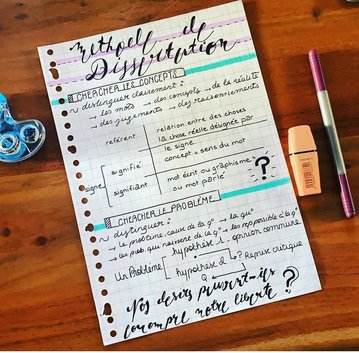 Methode de
Dissertation
CHERCHER LES CONCEPTS
~ distinguer clairement :
→ les mots → des concepts → de la réalité
→ des jugements → des raisonnements
référent
relation entre des choses
la chose réelle désignée par
le signe
concept = sens du mot
signe
signifié
signifiant
mot écrit ou graphisme
ou mot parlé
?
CHERCHER LE PROBLÈME
~ distinguer :
→ le problème, cause de la q° → la q°
→ les pb qui naissent de la q° → les rép possible à la q°
hypothèse 1 : opinion commune
Un Problème
hypothèse 2 ? Reprise critique
Q
Nos désirs peuvent-ils
corrompre notre liberté ?